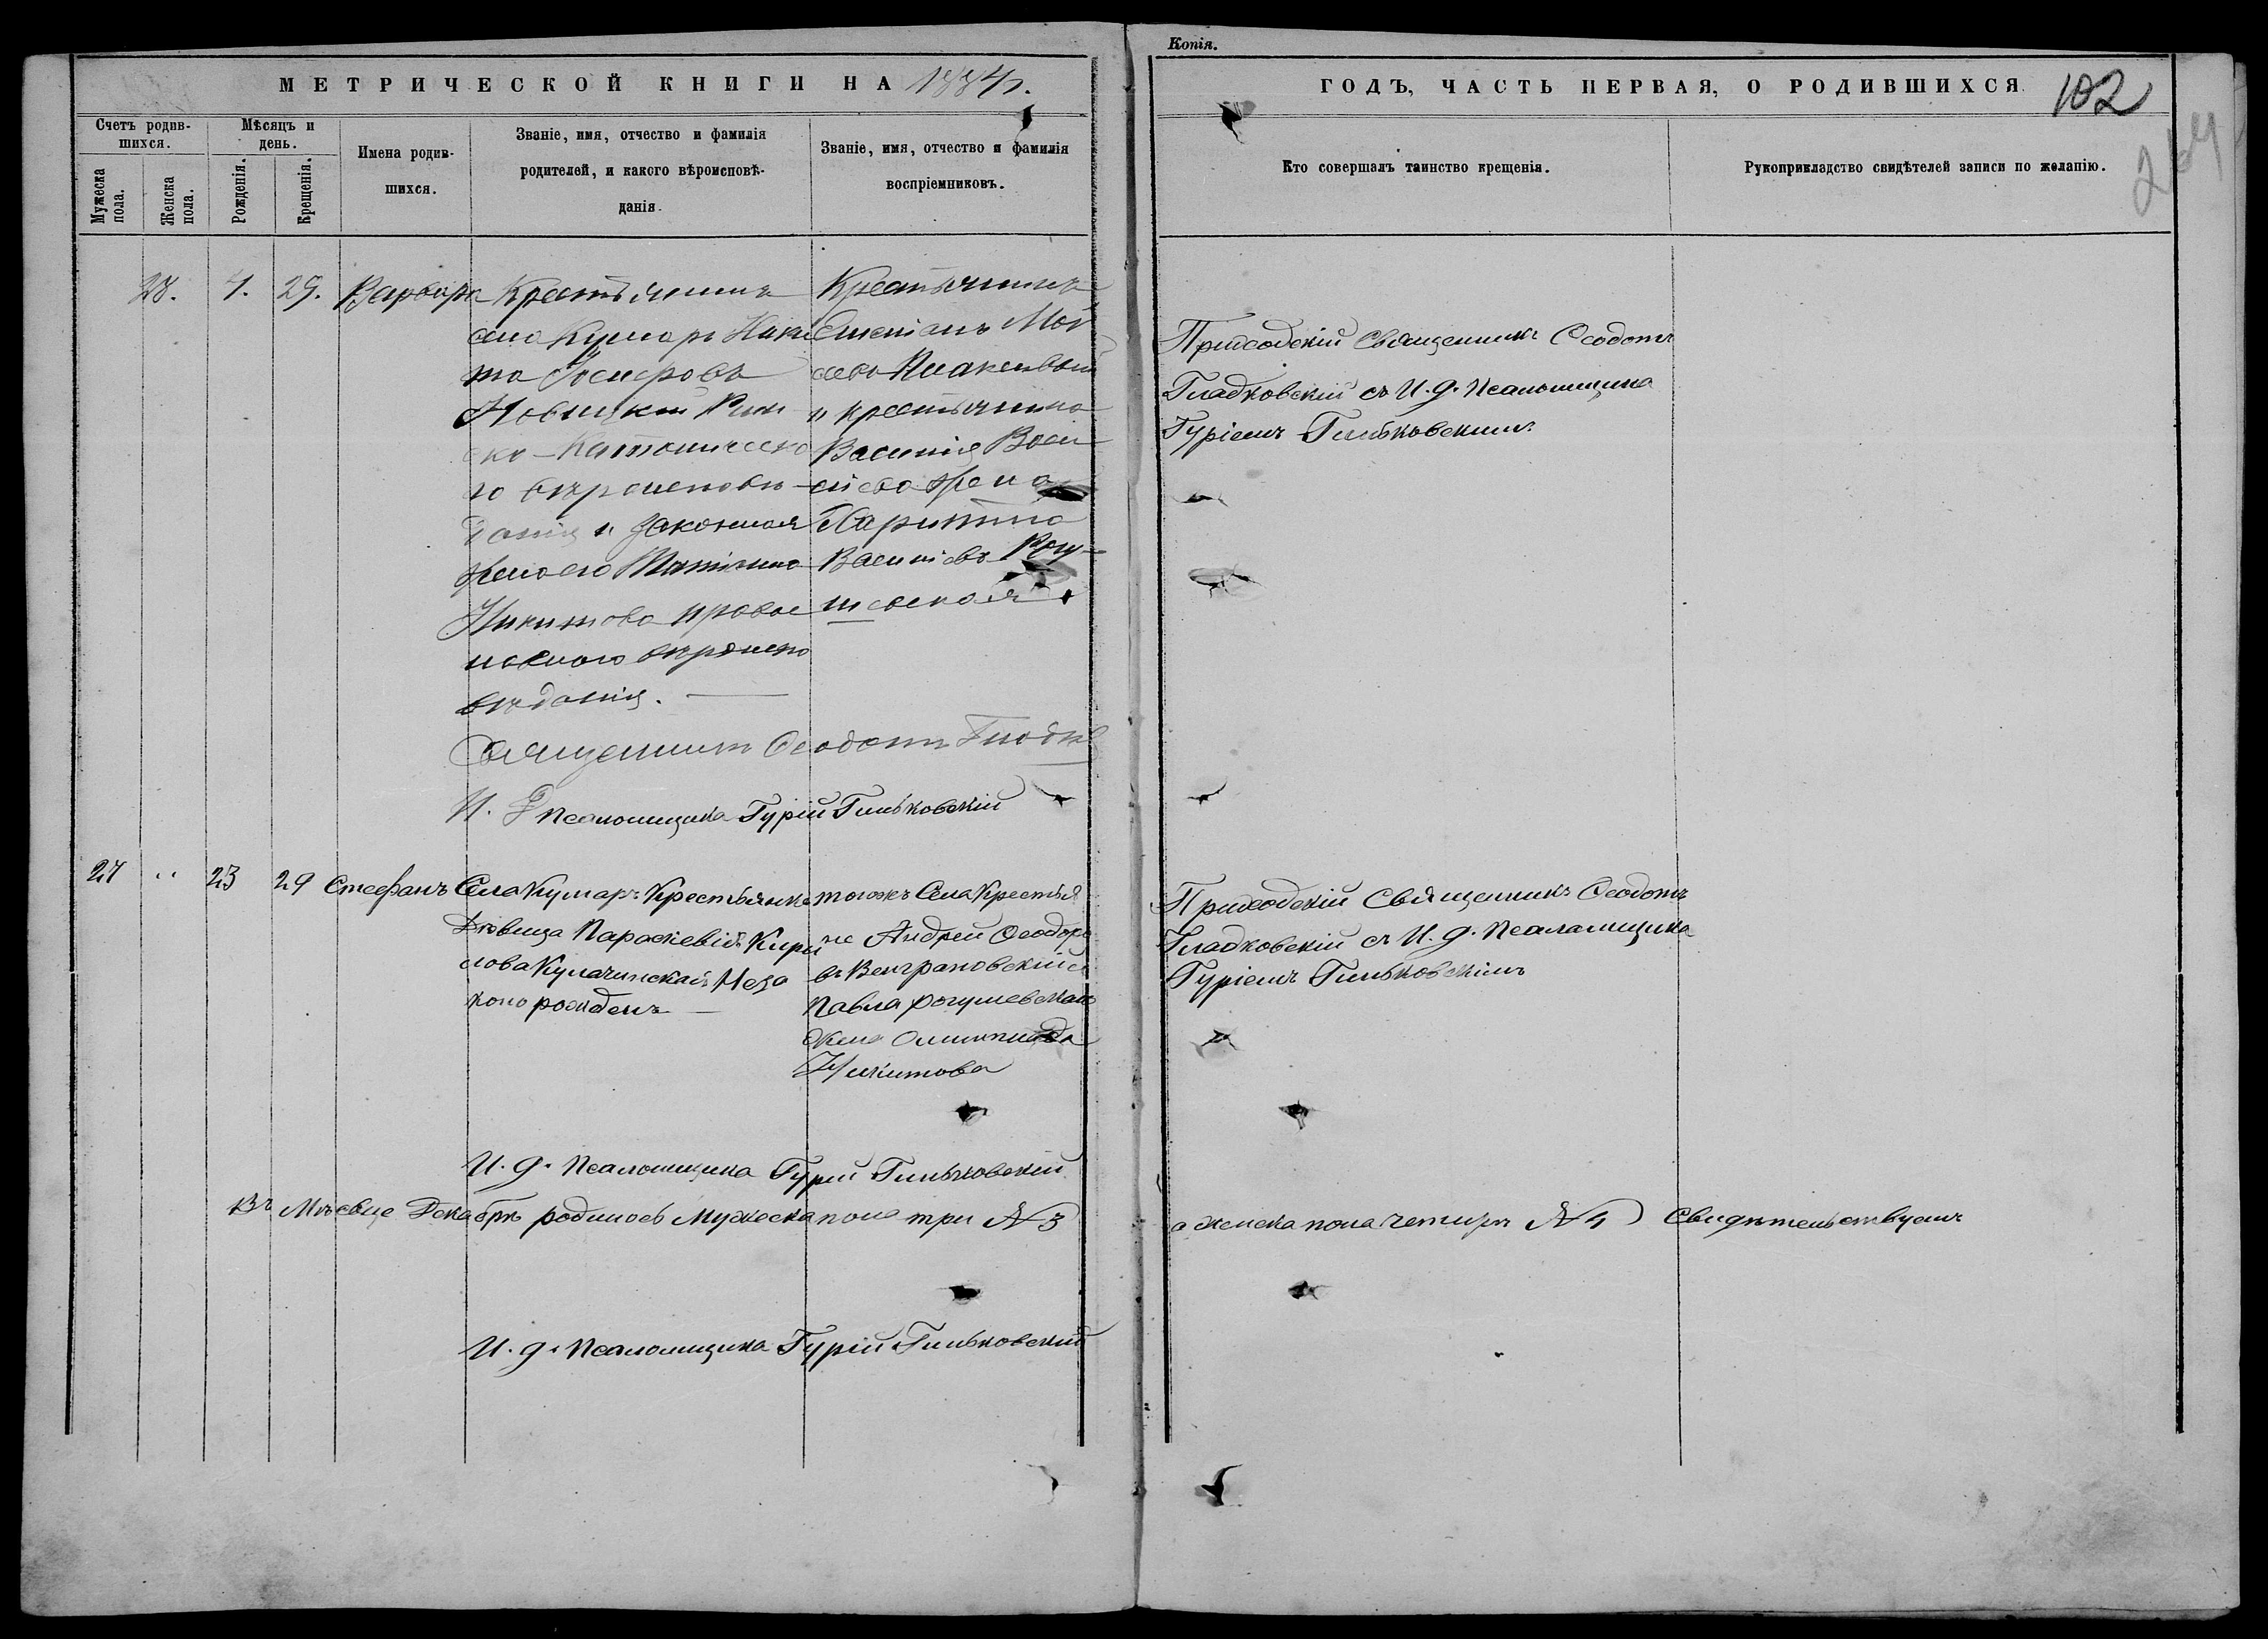 Копія.
МЕТРИЧЕСКОЙ КНИГИ НА 1884 г.
ГОДЪ, ЧАСТЬ ПЕРВАЯ, О РОДИВШИХСЯ.
102
204
Счетъ родив-
шихся.
Мужеска пола.
Женска пола.
Мѣсяцъ и
день.
Рожденія.
Крещенія.
Имена родив-
шихся.
Званіе, имя, отчество и фамилія
родителей, и какого вѣроисповѣ-
данія.
Званіе, имя, отчество и фамилія
воспріемниковъ.
Кто совершалъ таинство крещенія.
Рукоприкладство свидѣтелей записи по желанію.
28. 4. 29. Варвара
Крестьянинъ
села Кумаръ Ники
та
Новицкій Рим
ско-Католическо
го вѣроисповѣ-
данія и законная
жена его Татіана
Никитова право
славного вѣроиспо
вѣданія. —
Крестьянинъ
Степанъ Мой
сеевъ
и крестьянина
Василія
жена
Харитина
Васильева Рогу-
шевская
Приходскій Священникъ Ѳеодотъ
Гладковскій съ И. д. Псаломщика
Гуріемъ Гильковскимъ
Священникъ Ѳеодотъ Гладк
И. д. Псаломщика Гурій Гильковскій
27 " 23 29 Стефанъ
Села Кумаръ Крестьянка
Дѣвица Параскевія Кири
лова Кулачинская Неза
коно рожденъ —
тогожъ Села Крестья
не Андрей Ѳеодоро
въ Венграновскій и
Павла Рогушевскаго
жена Олимпиада
Никитова
Приходскій Священникъ Ѳеодотъ
Гладковскій съ И. д. Псаломщика
Гуріемъ Гильковскімъ
И. д. Псаломщика Гурій Гильковскій
Въ Мѣсяце Декабрѣ родилось Мужеска пола три № 3 а женска пола четыре № 4 Свидѣтельствуемъ
И. д. Псаломщика Гурій Гильковскій